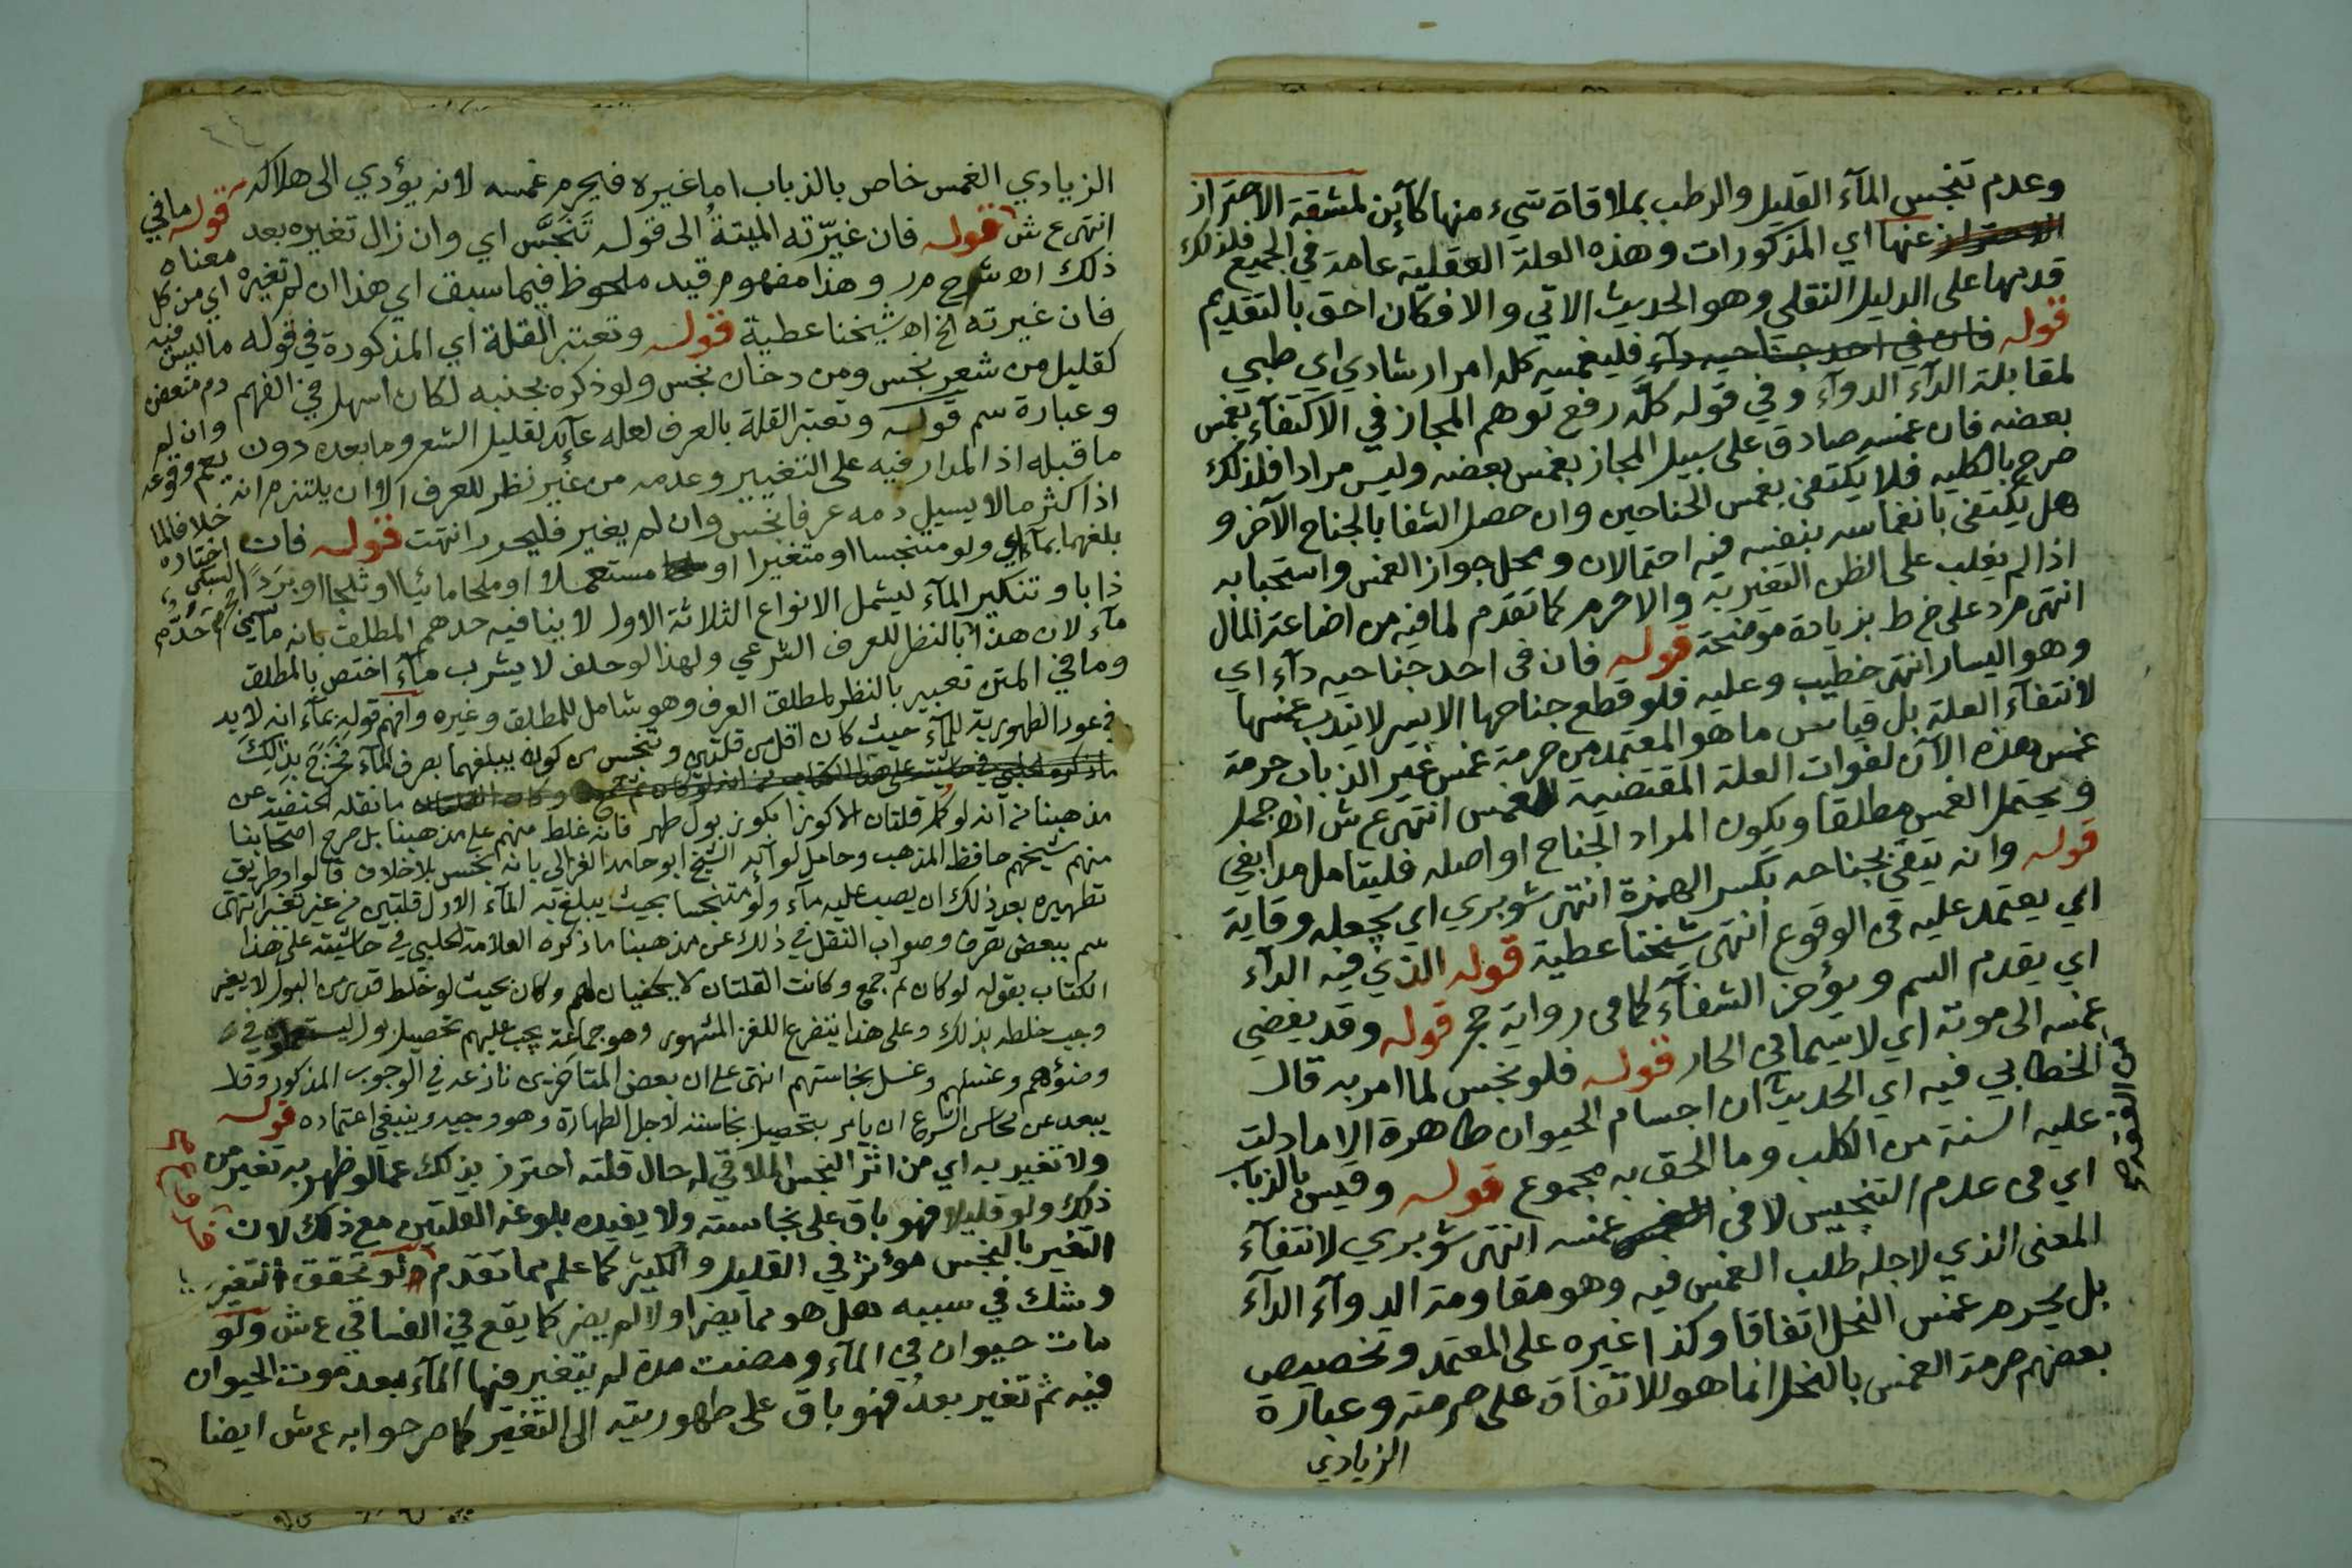 وعدم تنجس المآء القليل والرطب بملاقاة شيء منها كآئن لمشقة الاحتراز
عنها اي المذكورات وهذه العلة العقلية عامة في الجميع فلذلك
قدمها على الدليل النقلي وهو الحديث الاتي والا فكان احق بالتقديم
قوله فان في احد جناحيه دآء فليغمسه كله امر ارشادي اي طبي
لمقابلة الدآء الدوآء وفي قوله كله رفع توهم المجاز في الاكتفآء بغمس
بعضه فان غمسه صادق على سبيل المجاز بغمس بعضه وليس مرادا فلذلك
صرح بالكليه فلا يكتفى بغمس الجناحين وان حصل الشفا بالجناح الآخر و
هل يكتفى بانغماسه بنفسه فيه احتمالان ومحل جواز الغمس واستحبابه
اذا لم يغلب على الظن التغير به والا حرم كما تقدم لما فيه من اضاعة المال
انتهى م ر د على خ ط بزيادة موضحة قوله فان في احد جناحيه دآء اي
وهو اليسار انتهى خطيب وعليه فلو قطع جناحها الايسر لا يندب غمسها
لانتفآء العلة بل قياس ما هو المعتمد من حرمة غمس غير الذباب حرمة
غمس هذه الآن لفوات العلة المقتضية للغمس انتهى ع ش
ويحتمل الغمس مطلقا ويكون المراد الجناح او اصله فليتامل مدابغي
قوله وانه يتقي بجناحه بكسر الهمزة انتهى شوبري اي يجعله وقاية
اي يعتمد عليه في الوقوع انتهى شيخنا عطية قوله الذي فيه الدآء
اي يقدم السم ويؤخر الشفآء كما في رواية حج قوله وقد يفضي
غمسه الى موته اي لا سيما في الحار قوله فلو نجس لما امر به قال
الخطابي فيه اي الحديث ان اجسام الحيوان طاهرة الا ما دلت
عليه السنة من الكلب وما الحق به مجموع قوله وقيس بالذباب
اي في عدم التنجيس لا في غمسه انتهى شوبري لانتفآء
المعنى الذي لاجله طلب الغمس فيه وهو مقاومة الدوآء الدآء
بل يحرم غمس النحل اتفاقا وكذا غيره على المعتمد وتخصيص
بعضهم حرمة الغمس بالنحل انما هو للاتفاق على حرمته وعبارة
الزيادي
الزيادي الغمس خاص بالذباب اما غيره فيحرم غمسه لانه يؤدي الى هلاكه
انتهى ع ش قوله فان غيرته الميتة الى قوله تنجس اي وان زال تغيره بعد
ذلك اه شرح م ر وهذا مفهوم قيد ملحوظ فيما سبق اي هذا ان لم تغيره
فان غيرته الخ اه شيخنا عطية قوله وتعتبر القلة اي المذكورة في قوله
كقليل من شعر نجس ومن دخان نجس ولو ذكره بجنبه لكان اسهل في الفهم
وعبارة سم قوله وتعتبر القلة بالعرف لعله عآئد لقليل الشعر وما بعده دون
ما قبله اذ المدار فيه على التغيير وعدمه من غير نظر للعرف الا ان يلتزم انه
اذا كثر ما لا يسيل دمه عرفا نجس وان لم يغير فليحرر انتهت قوله فان
بلغهما بمآء اي ولو متنجسا او متغيرا او مستعملا او ملحا مائيا او ثلجا او بردا
ذابا وتنكير المآء ليشمل الانواع الثلاثة الاول لا ينافيه حدهم المطلق بانه ما يسمى
مآء لان هذا بالنظر للعرف الشرعي ولهذا لو حلف لا يشرب مآء اختص بالمطلق
وما في المتن تعبير بالنظر لمطلق العرف وهو شامل للمطلق وغيره وافهم قوله بمآء انه لا بد
في عود الطهورية للمآء حيث كان اقل من قلتين وتنجس من كونه يبلغهما بصرف المآء فخرج بذالك
ما نقله الحنفية عن
مذهبنا من انه لو كمل قلتان الا كوزا بكوز بول طهر فانه غلط منهم على مذهبنا بل صرح اصحابنا
منهم شيخهم حافظ المذهب وحامل لوآئه الشيخ ابو حامد الغزالي بانه نجس بلا خلاف قالوا وطريق
تطهيره بعد ذلك ان يصب عليه مآء ولو متنجسا بحيث يبلغ به المآء الاول قلتين من غير تغير انتهى
سم ببعض تصرف وصواب النقل في ذلك عن مذهبنا ما ذكره العلامة الحلبي في حاشيته على هذا
الكتاب بقوله لو كان ثم جمع وكانت القلتان لا يكفيان لهم وكان بحيث لو خلط قدر من البول لا يغير
وجب خلطه بذلك وعلى هذا يتفرع اللغز المشهور وهو جماعة يجب عليهم تحصيل بول ليستعملوه في
وضوءهم وغسلهم وغسل نجاستهم انتهى على ان بعض المتاخرين نازعه في الوجوب المذكور وقال
يبعد عن محاسن الشرع ان يامر بتحصيل نجاسة لاجل الطهارة وهو وجيه وينبغي اعتماده قوله
ولا تغير به اي من اثر النجس الملاقي له حال قلته احترز بذلك عما لو ظهر به تغير من
ذلك ولو قليلا فهو باق على نجاسته ولا يفيده بلوغه القلتين مع ذلك لان
التغير بالنجس مؤثر في القليل والكثير كما علم مما تقدم ولو تحقق التغير
وشك في سببه هل هو مما يضر اولا لم يضر كما يقع في الفساقي ع ش ولو
مات حيوان في المآء ومضت مدة لم يتغير فيها المآء بعد موت الحيوان
فيه ثم تغير بعد فهو باق على طهوريته الى التغير كما صرحوا به ع ش ايضا
قوله ما في
معناه
اي من كل
ما ليس فيه
دم متعفن
وان لم
يعم وقوعه
خلافا لما
اختاره
السبكي